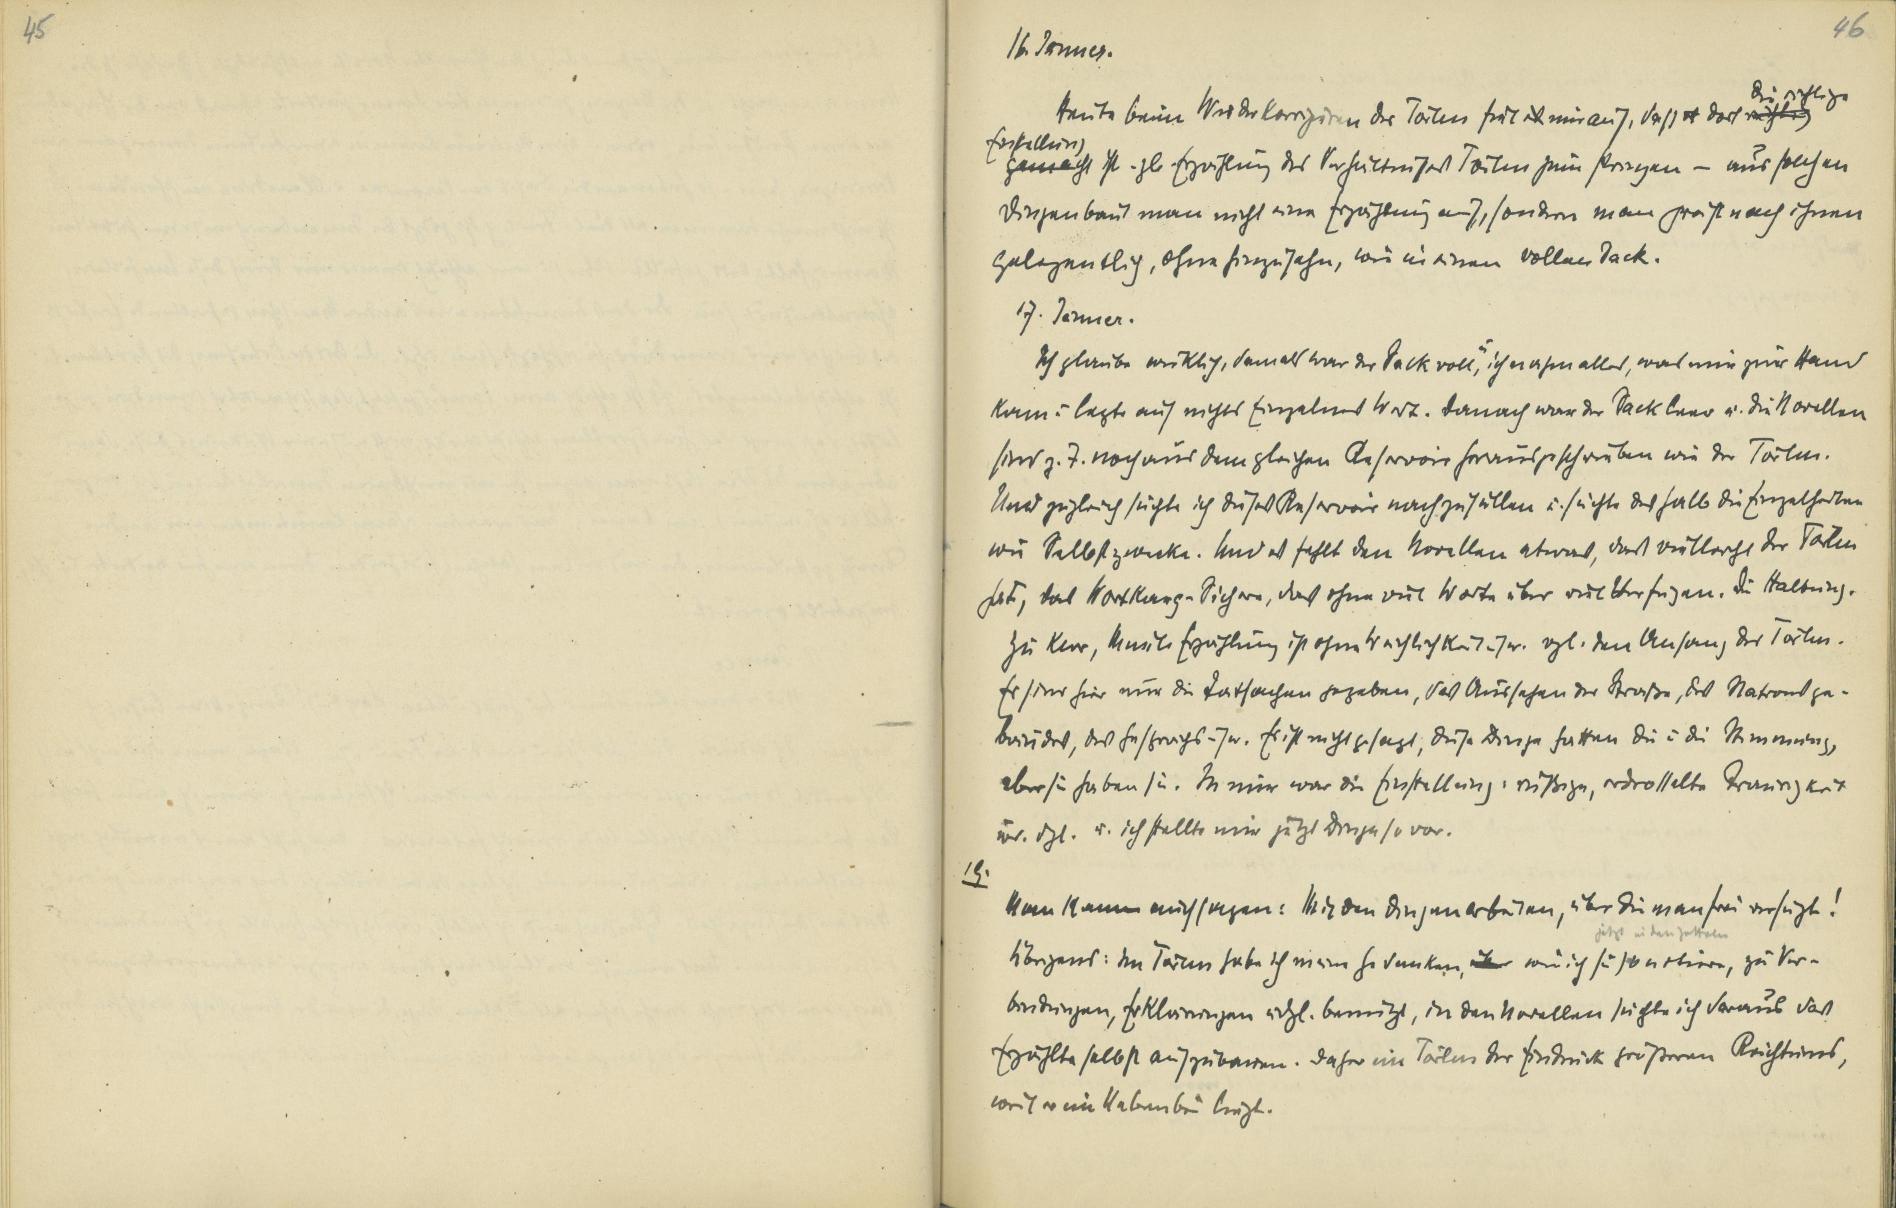 45
46
16. Jänner.
die richtige
Heute beim Wiederkorrigieren der Törless fiel es mir auf, dass es dort richtig
Einstellung
gemacht ist - zb. Erzählung des Verhältnisses Törless zum Prinzen – aus solchen
Dingen baut man nicht eine Erzählung auf, sondern man greift nach ihnen
gelegentlich, ohne hinzusehn, wie in einen vollen Sack.
17. Jänner.
Ich glaube wirklich, damals war der Sack voll, ich nahm alles, was mir zur Hand
kam u legte auf nichts Einzelnes Wert. Danach war der Sack leer u. die Novellen
sind z. T. noch aus dem gleichen Reservoir herausgeschrieben wie der Törless.
Und zugleich suchte ich dieses Reservoir nachzufüllen u. suchte deshalb die Einzelheiten
wie Selbstzwecke. Und es fehlt den Novellen etwas, das vielleicht der Törless
hat, das Wortkarg-Sichere, das ohne viel Worte über viel Verfügen. Die Haltung.
Zu Kerr, Musils Erzählung ist ohne Weichlichkeit usw. vgl. den Anfang des Törless.
Es sind hier nur die Tatsachen gegeben, das Aussehen der Straße, des Stationsge-
bäudes, des Gesprächs usw. Es ist nicht gesagt, diese Dinge hatten die u die Stimmung,
aber sie haben sie. In mir war die Einstellung: rußige, erdrosselte Traurigkeit
udgl. u. ich stellte mir jetzt Dinge so vor.
19.
Man kann auch sagen: Mit den Dingen arbeiten, über die man frei verfügt!
jetzt in den Zetteln
Übrigens: Im Törless habe ich meine Gedanken, wie ich sie so notiere, zu Ver-
bindungen, Erklärungen udgl. benützt, in den Novellen suchte ich daraus das
Erzählte selbst aufzubauen. Daher im Törless der Eindruck größeren Reichtums,
weil er im Nebenbei liegt.